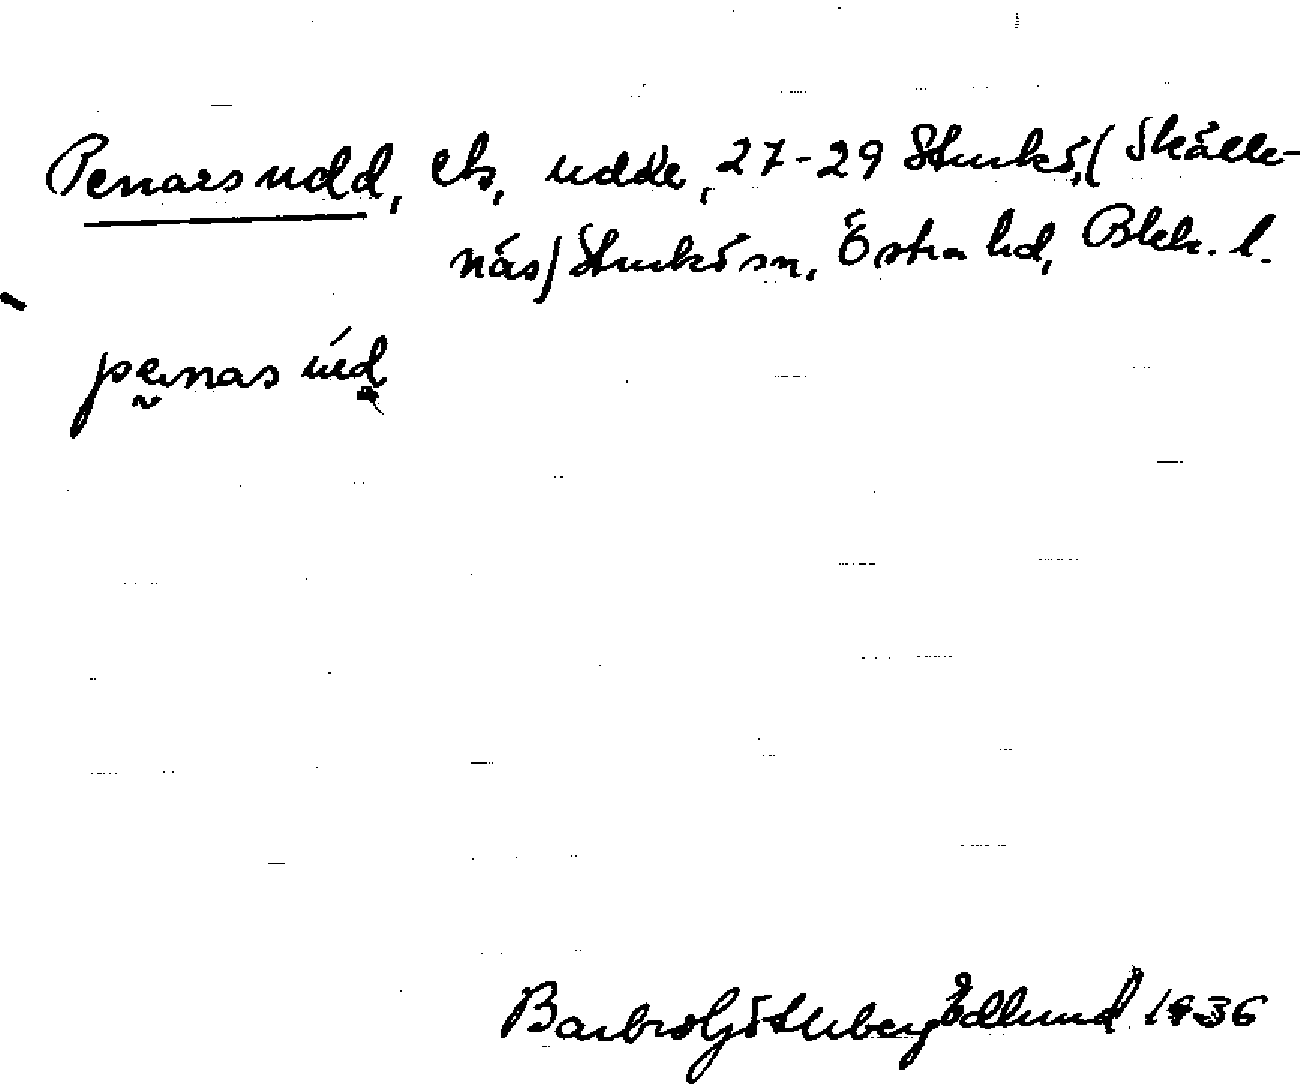 Penarsudd, ek, udde, 27-29 Sturkö, (Skälle-
näs) Sturkö sn, Östra hd, Blek. l.
penas úd
Barbro Götlberg Edlund 1936